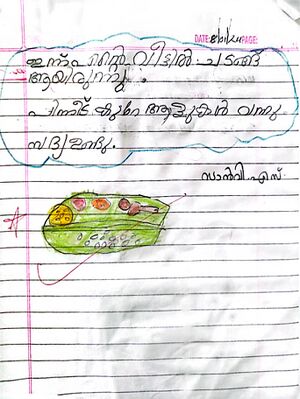 DATE: PAGE:
ഇന്ന് എന്റെ വീട്ടിൽ ചടങ്ങ്
ആയിരുന്നു.
പിന്നീട് കുറേ ആളുകൾ വന്നു
സദ്യ ഉണ്ടു.
സാൻവി.എസ്